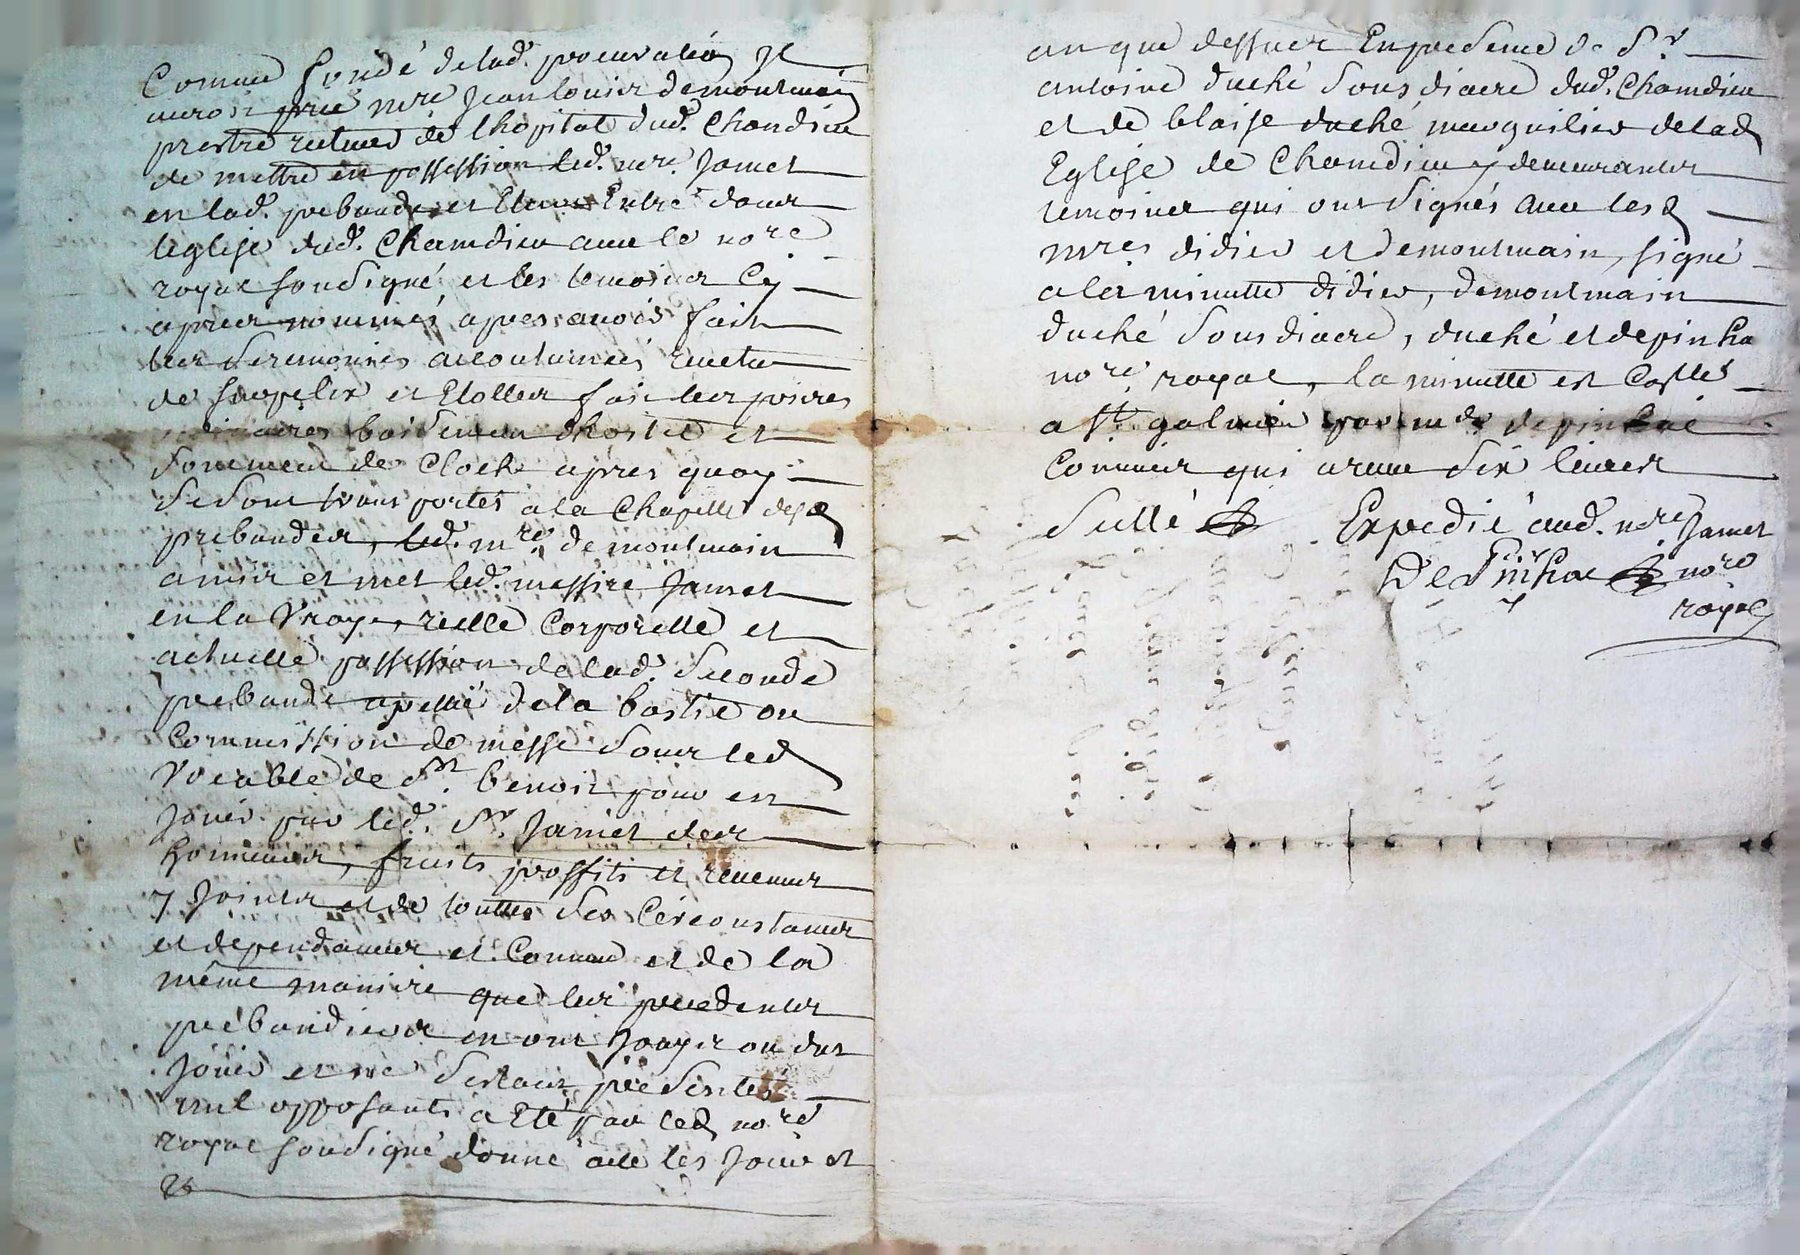 Comme fondé de lad. procuration Il
auroit prié mre Jean louis demontmain
prestre recteur de lhopital dud. Chandieu
de mettre en possession led. mre. Jamet
en lad. prebande et Etant Entré dans
leglise dud. Chamdieu avec le nore
royal soussigné et les temoins Cy
apres nommés apres avoir fait
les seremonies accoutumées revetu
de surpelix et Etolle fait les prieres
baisement dhostel et
sonement de Cloche apres quoy
se sont transportés a la Chapelle desd
prebandes, led. mre. demontmain
a mis et met led. messire Jamet
en la Vraye, reelle Corporelle et
actuelle possession de lad. seconde
prebande apellée de la bastie ou
Commission de messe sous led
Vocable de st. benoit pour en
Jouir par led. sr. Jamet des
honneurs, fruits proffits et revenus
y Joints et de touttes ses Circonstances
et dependances et Comme et de la
même maniere que les precedents
prebandiers en ont Jouyr ou dut
Jouir et ne sestant présentés
nul opposants a Eté par led nore
royal soussigné donné acte les Jour et
an que dessus En presence de Sr
antoine duché sous diacre dud. Chamdieu
et de blaise duché marguilier de lad
Eglise de Chamdieu y demeurants
temoins qui ont signés avec lesd
mres didier et demontmain, signé
a la minutte didier, demontmain
duché sous diacre, duché et depinhac
nore royal, la minutte est Collée
a st galmier par mr de pinhac
Commis qui a reçu six livres
sellé Expedié aud. mre Jamet
DePinhac nore
royal